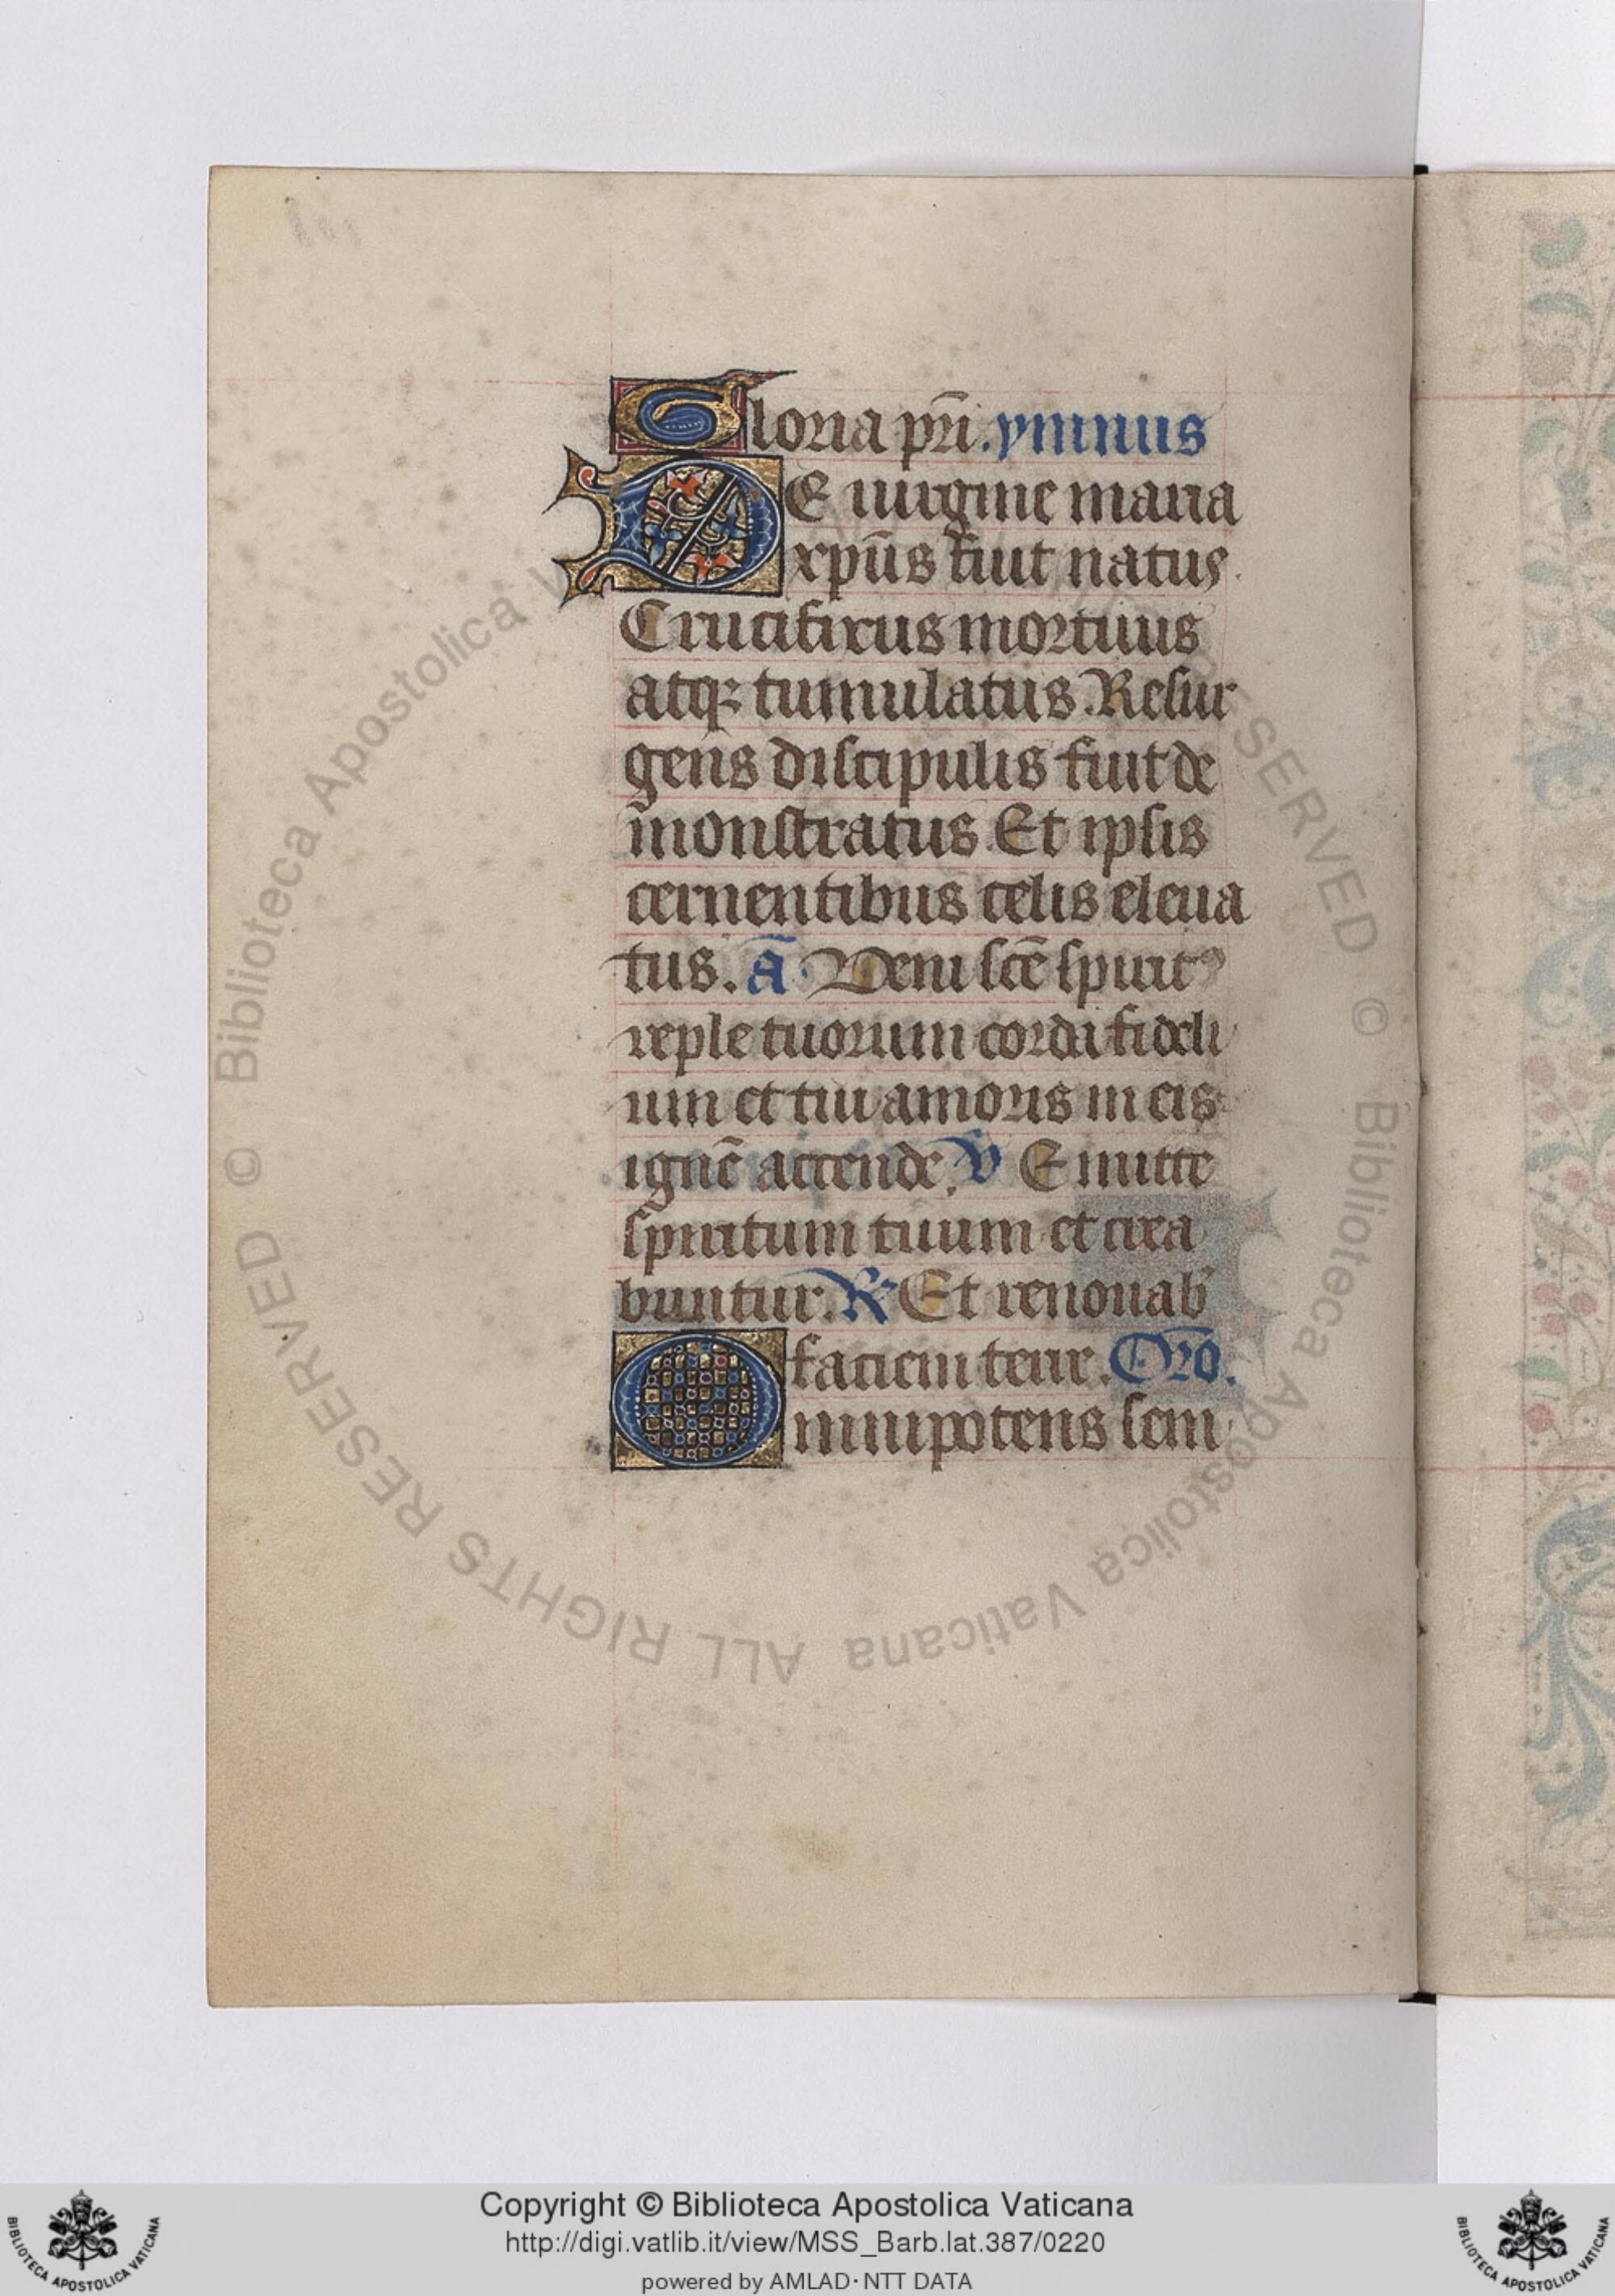 Gloria pr̄i. ymnus
DE uirgine maria
xp̄us fuit natus.
Crucifixus mortuus
atqꝫ tumulatus. Resur
gens discipulis fuit de
monstratus. Et ipsis
cernentibus celis eleua
tus. ā Veni sc̄e spiritꝰ
reple tuorum corda fideli
um et tui amoris in eis
ignē accende. V Emitte
spiritum tuum et crea
buntur. R Et renouab'
faciem terre. Oro.
Omnipotens sem
© Biblioteca Apostolica Vaticana ALL RIGHTS RESERVED
Copyright © Biblioteca Apostolica Vaticana
http://digi.vatlib.it/view/MSS_Barb.lat.387/0220
powered by AMLAD·NTT DATA
BIBLIOTECA APOSTOLICA VATICANA
BIBLIOTECA APOSTOLICA VATICANA